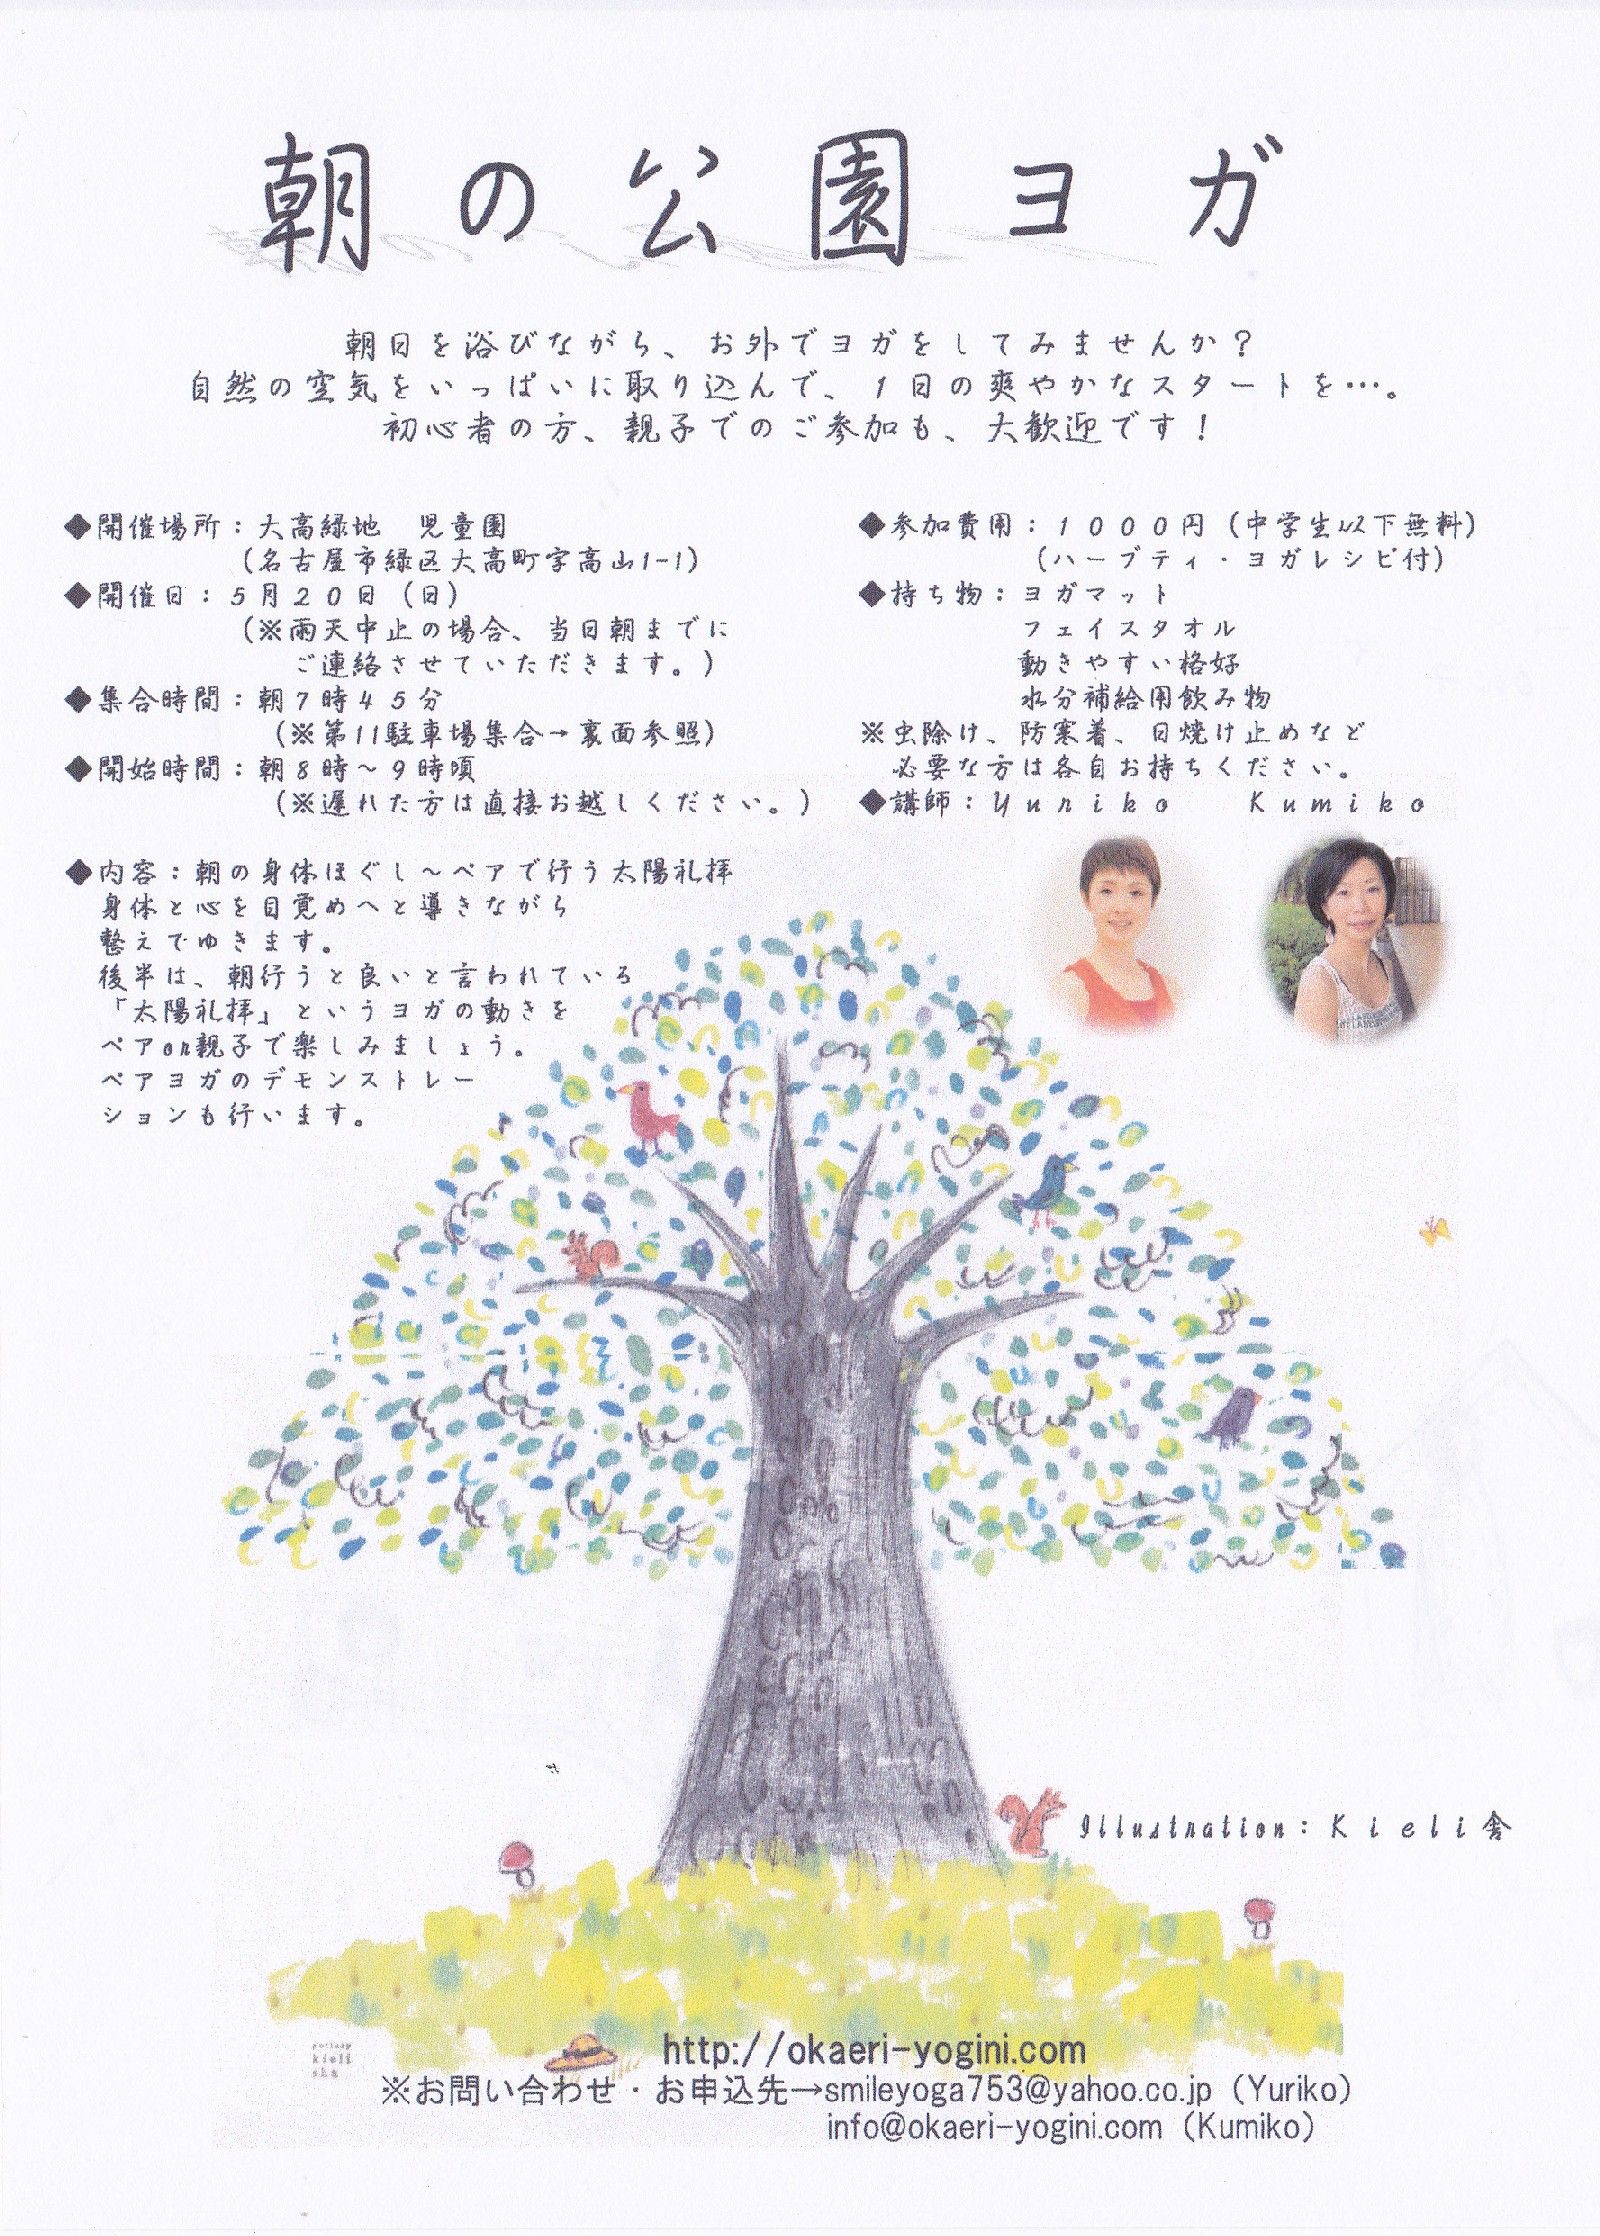 朝の公園ヨガ
朝日を浴びながら、お外でヨガをしてみませんか？
自然の空気をいっぱいに取り込んで、1日の爽やかなスタートを…。
初心者の方、親子でのご参加も、大歓迎です！
◆開催場所：大高緑地　児童園
(名古屋市緑区大高町字高山1-1)
◆開催日：５月２０日（日）
(※雨天中止の場合、当日朝までに
ご連絡させていただきます。)
◆集合時間：朝７時４５分
(※第11駐車場集合→裏面参照)
◆開始時間：朝８時～９時頃
(※遅れた方は直接お越しください。)
◆内容：朝の身体ほぐし～ペアで行う太陽礼拝
身体と心を目覚めへと導きながら
整えてゆきます。
後半は、朝行うと良いと言われている
「太陽礼拝」というヨガの動きを
ペアor親子で楽しみましょう。
ペアヨガのデモンストレー
ションも行います。
◆参加費用：１０００円（中学生以下無料）
(ハーブティ・ヨガレシピ付)
◆持ち物：ヨガマット
フェイスタオル
動きやすい格好
水分補給用飲み物
※虫除け、防寒着、日焼け止めなど
必要な方は各自お持ちください。
◆講師：Ｙｕｒｉｋｏ　　Ｋｕｍｉｋｏ
Illustration：Ｋｉｅｌｉ舎
pottery
kieli
sha
http://okaeri-yogini.com
※お問い合わせ・お申込先→smileyoga753@yahoo.co.jp（Yuriko）
info@okaeri-yogini.com（Kumiko）